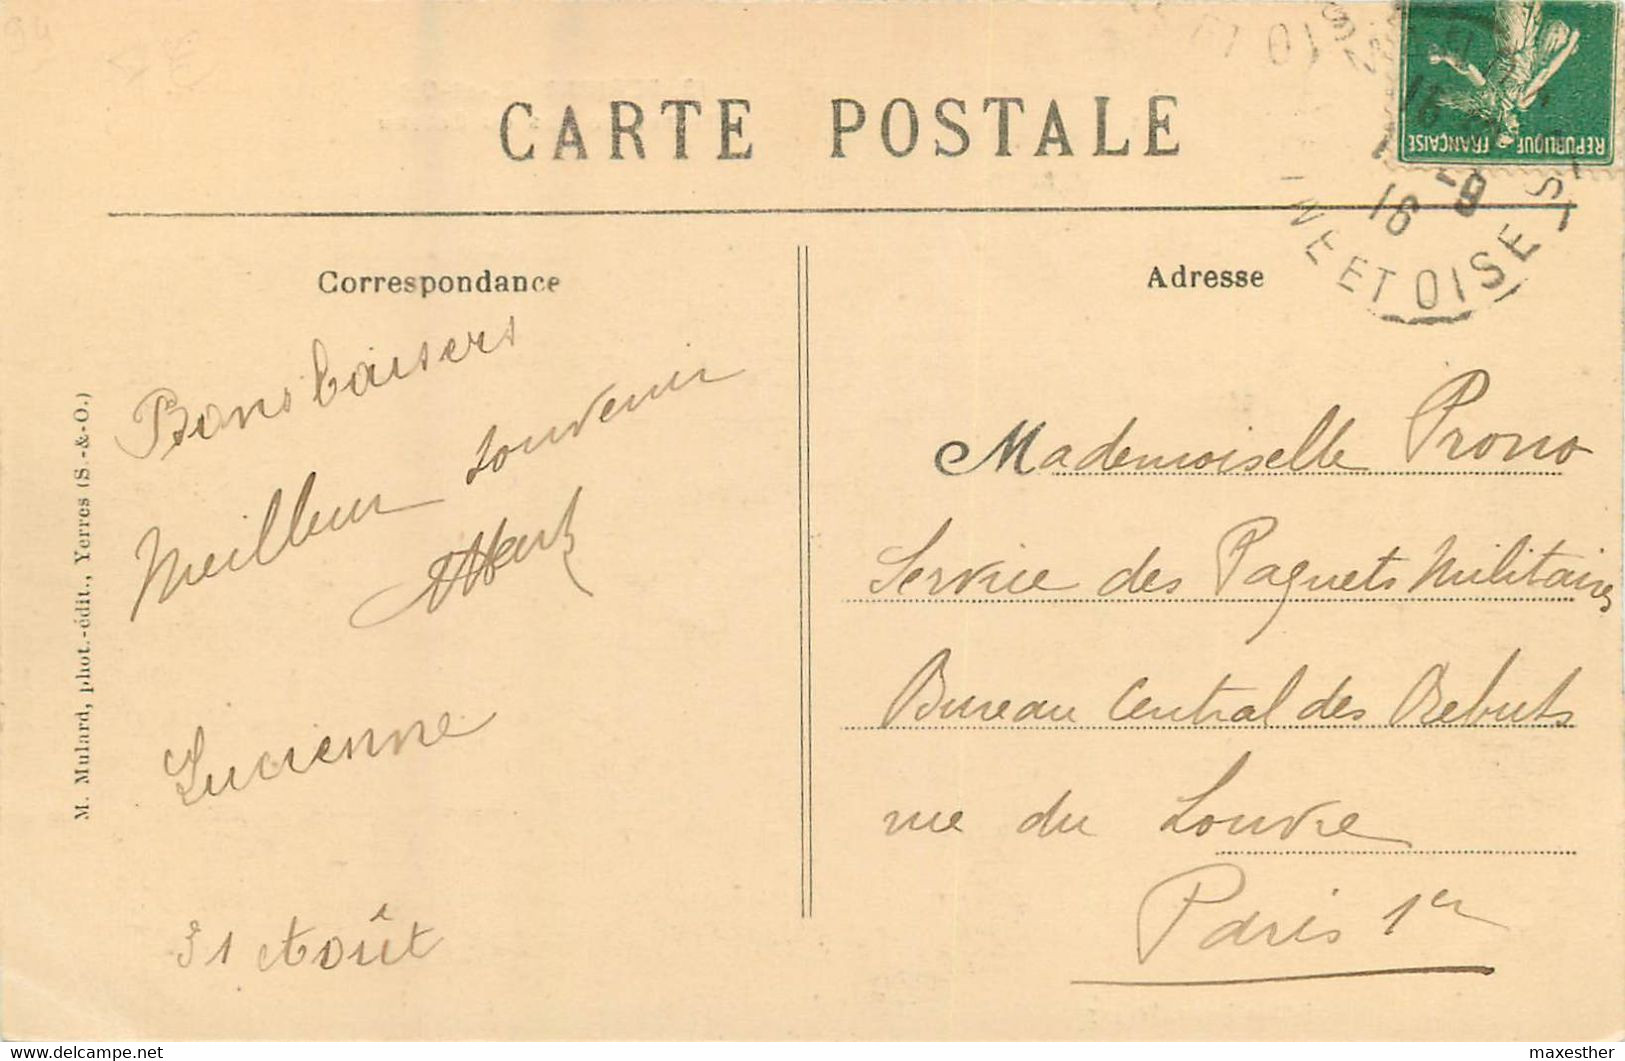 CARTE POSTALE
REPUBLIQUE FRANÇAISE
16
18 -9
NE ET OISE
Correspondance
Adresse
Bons baisers
Meilleur souvenir
Lucienne
31 Août
M. Mulard, phot.-édit., Yerres (S.-&-O.)
Mademoiselle Prono
Service des Paquets Militaires
Bureau Central des Rebuts
rue du Louvre
Paris 1er
94
maxesther